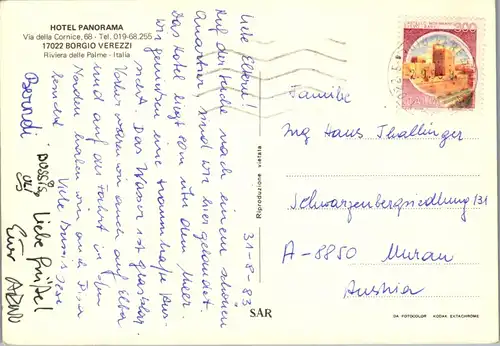 HOTEL PANORAMA
Via della Cornice, 68 - Tel. 019-68.255
17022 BORGIO VEREZZI
Riviera delle Palme - Italia
31-8-83
Liebe Eltern!
Auf der Suche nach einem schönen
Quartier, sind wir hier gelandet.
Das Hotel liegt 60m über dem Meer.
Wir genießen eine traumhafte Aus-
sicht. Das Wasser ist glasklar.
Vorher waren wir auch auf Elba
und auf der Fahrt in den
Norden haben wir auch Pisa
besucht. Viele Bussis
Berndi
Bussis
Liebe Grüße!
Euer
Reproduzione vietata
SAR
300
ITALIA
Familie
Ing Hans Thallinger
Schwarzenbergsiedlung 131
A-8850 Murau
Austria
DA FOTOCOLOR KODAK EKTACHROME